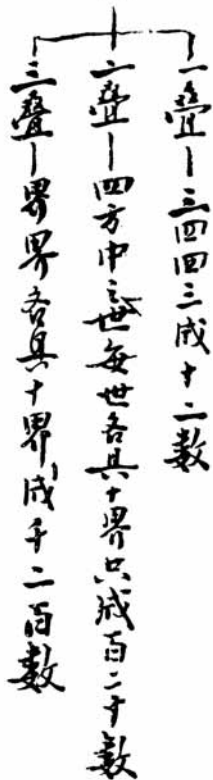 一疊—三四四三成十二數
二疊—四方中三世每世各具十界只成百二十數
三疊—界界各具十界成千二百數